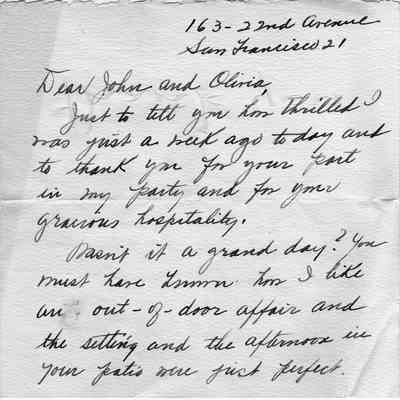 163-22nd Avenue
San Francisco 21
Dear John and Olivia,
Just to tell you how thrilled I
was just a week ago today and
to thank you for your part
in my party and for your
gracious hospitality.
Wasn't it a grand day? You
must have known how I like
an out-of-door affair and
the setting and the afternoon in
your patio were just perfect.